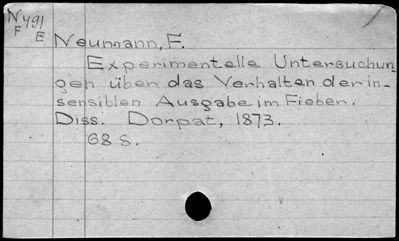 N491
F E.
Neumann, F.
Experimentelle Untersuchun-
gen über das Verhalten der in-
sensiblen Ausgabe im Fieber.
Diss. Dorpat, 1873.
68 S.